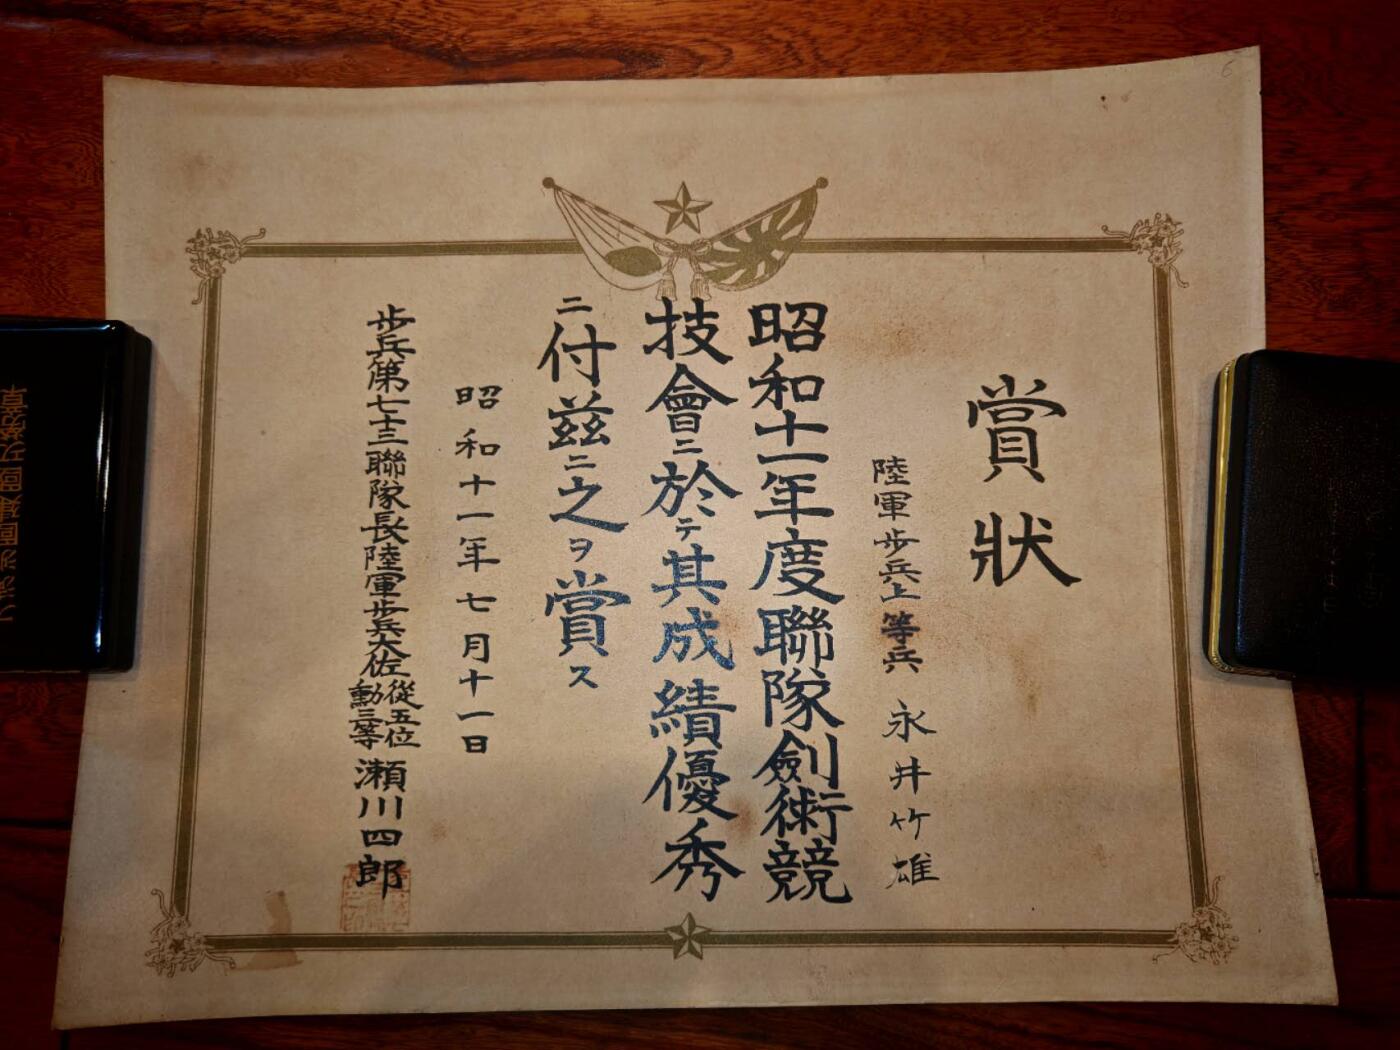 賞狀
陸軍歩兵上等兵 永井竹雄
昭和十一年度聯隊劍術競
技會ニ於テ其成績優秀
ニ付茲ニ之ヲ賞ス
昭和十一年七月十一日
歩兵第七十三聯隊長陸軍歩兵大佐從五位勳三等瀨川四郎
6